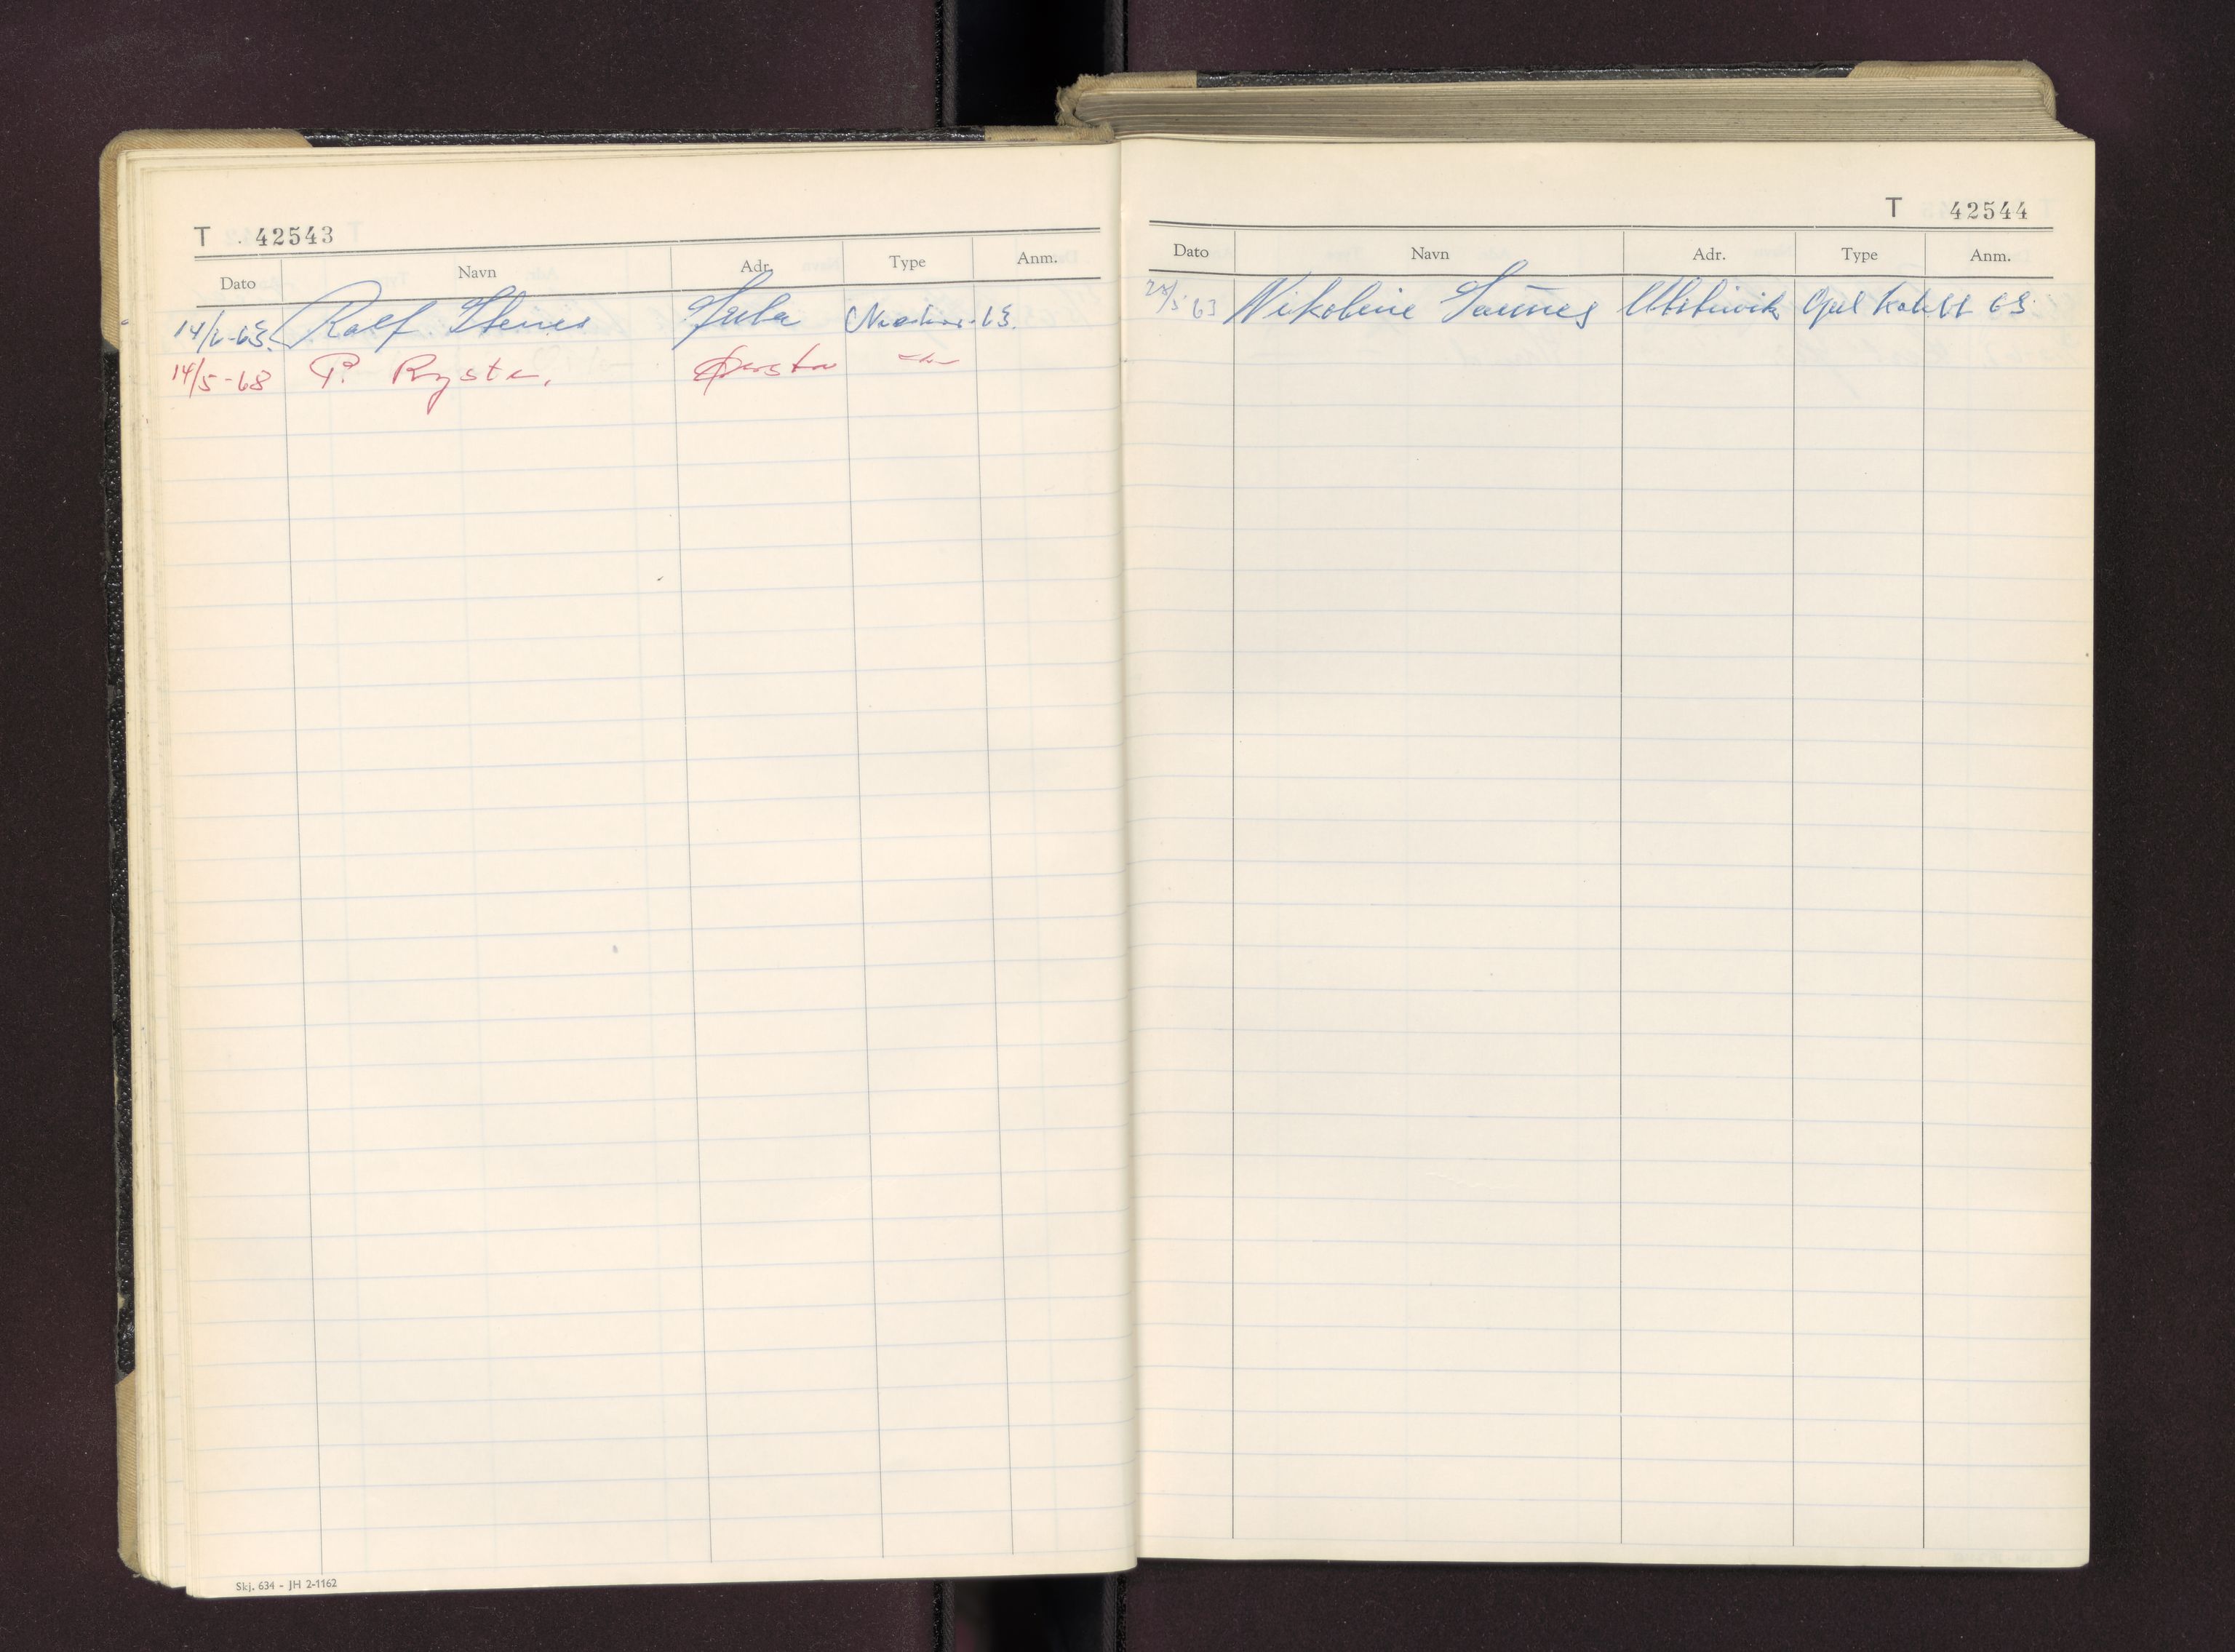 T 42543
Dato Navn Adr. Type Anm.
14/6-63 Rolf Stenes
14/5-68 P. Ryste. Ørsta
Skj. 634 - JH 2-1162
T 42544
Dato Navn Adr. Type Anm.
5 63 Nikoline Saunes Ulsteinvik Opel Kadett 63